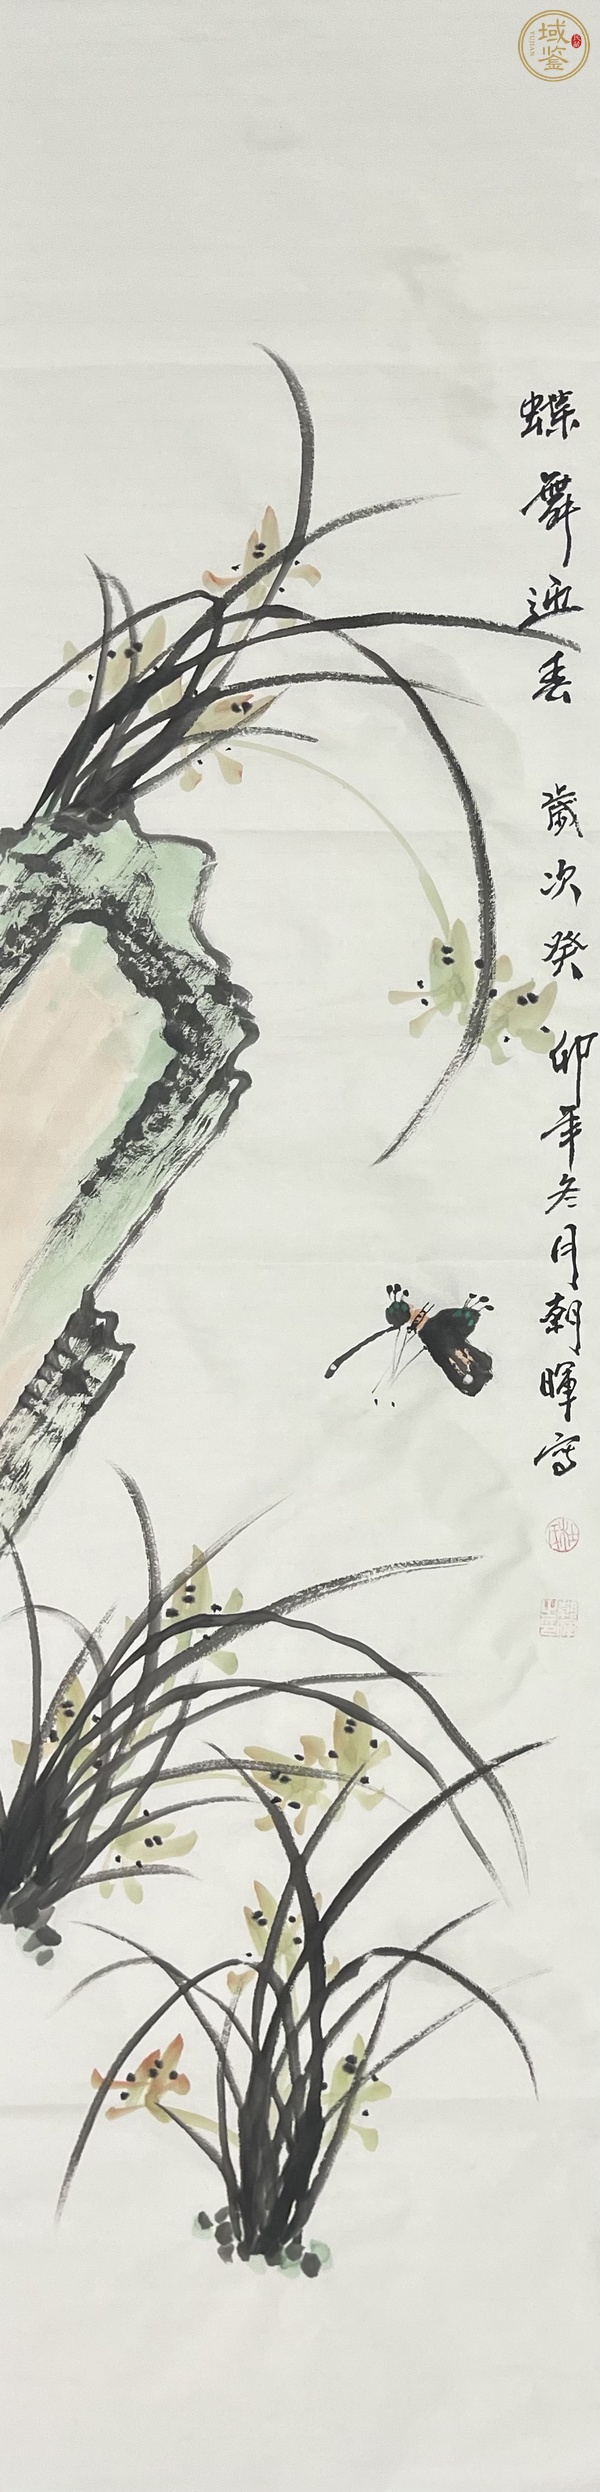 域鉴
YUJIAN
蝶舞迎春 歲次癸卯年冬月朝暉寫